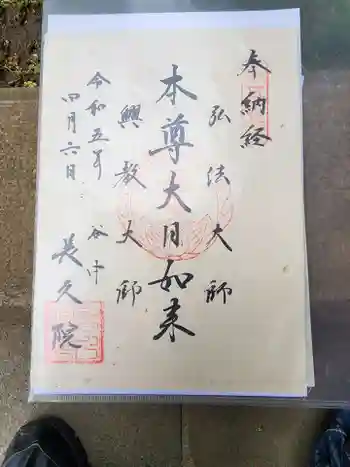 奉納経
弘法大師
本尊大日如来
興教大師
令和五年 谷中
四月六日
長久院